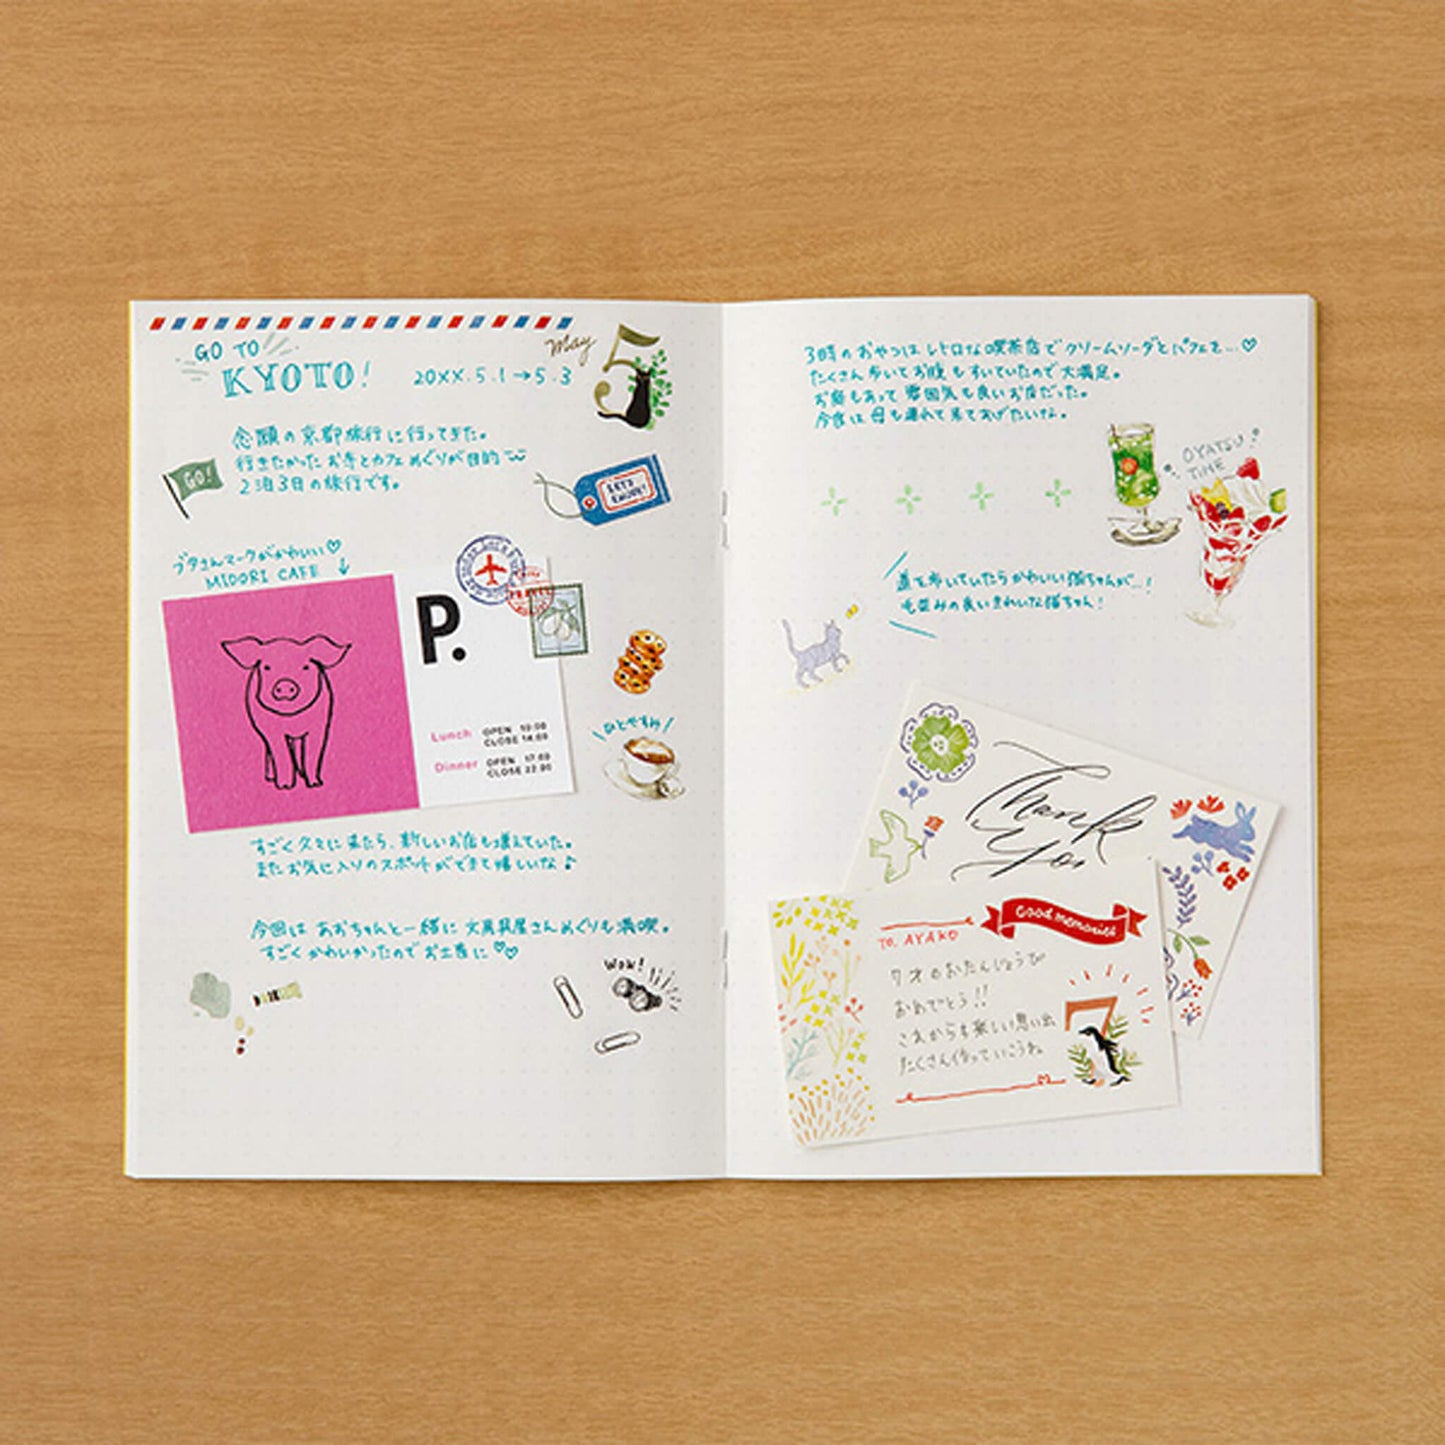 GO TO
KYOTO!
20XX.5.1→5.3
May
5
念願の京都旅行に行ってきた。
行きたかったお寺とカフェめぐりが目的
2泊3日の旅行です。
GO!
LET'S
ENJOY!
ブタさんマークがかわいい♡
MIDORI CAFE ↓
P.
TRAVEL
Lunch OPEN 10:00
CLOSE 14:00
Dinner OPEN 17:00
CLOSE 22:00
\ひとやすみ/
すごく久々に来たら、新しいお店も増えていた。
またお気に入りのスポットができて嬉しいな♪
今回はあおちゃんと一緒に文房具屋さんめぐりも満喫。
すごくかわいかったのでお土産に♡♡
WOW!
3時のおやつはレトロな喫茶店でクリームソーダとパフェを…♡
たくさん歩いてお腹もすいていたので大満足。
お庭もあって雰囲気も良いお店だった。
今度は母も連れて来てあげたいな。
OYATSU
TIME
道を歩いていたらかわいい猫ちゃんが…!
毛並みの良いきれいな猫ちゃん!
Thank
You
Good memories
TO. AYAKO
7才のおたんじょうび
おめでとう!!
これからも楽しい思い出
たくさん作っていこうね
7